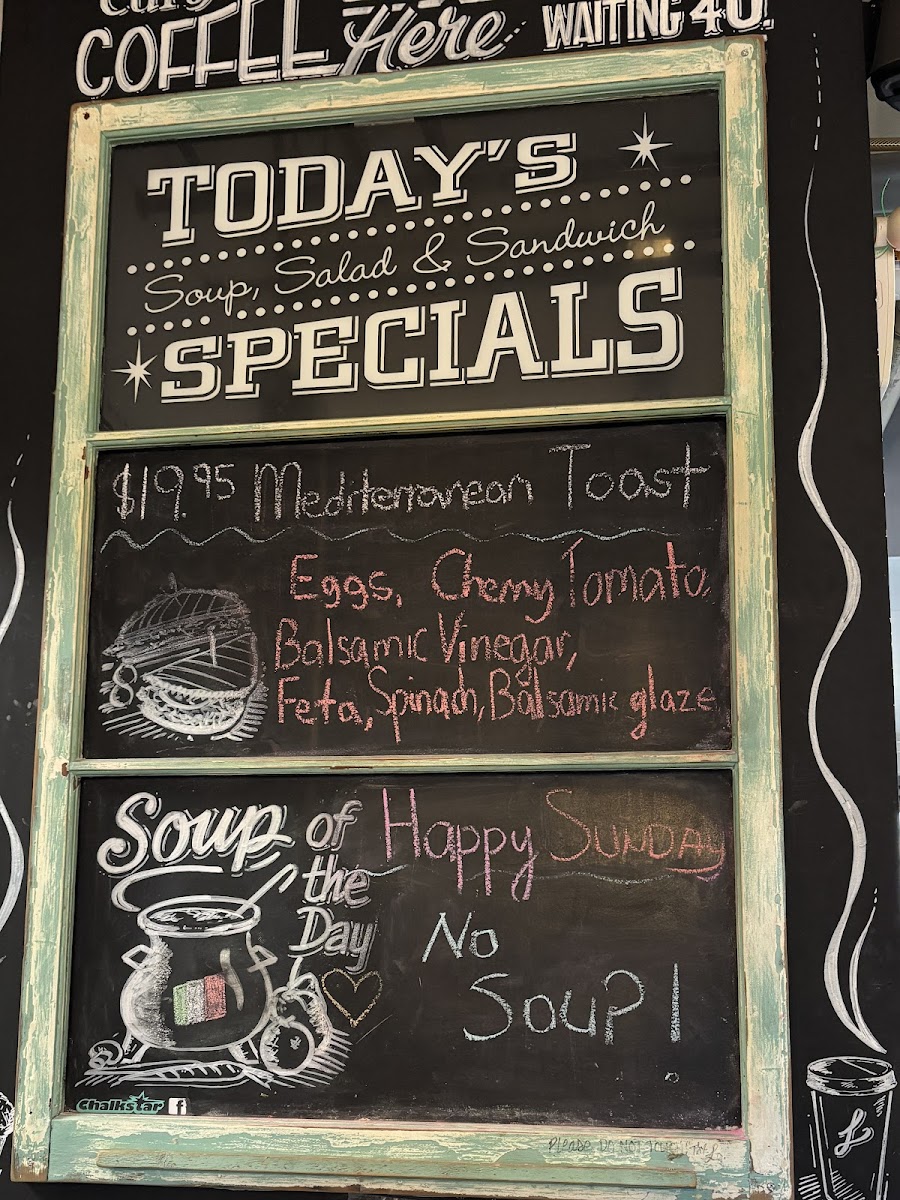 COFFEE Here WAITING 4U!
TODAY'S
Soup, Salad & Sandwich
SPECIALS
$19.95 Mediterranean Toast
Eggs, Cherry Tomato,
Balsamic Vinegar,
Feta, Spinach, Balsamic glaze
Soup of
the
Day
Happy SUNDAY
No
SouP!
Chalkstar f
Please DO NOT
L